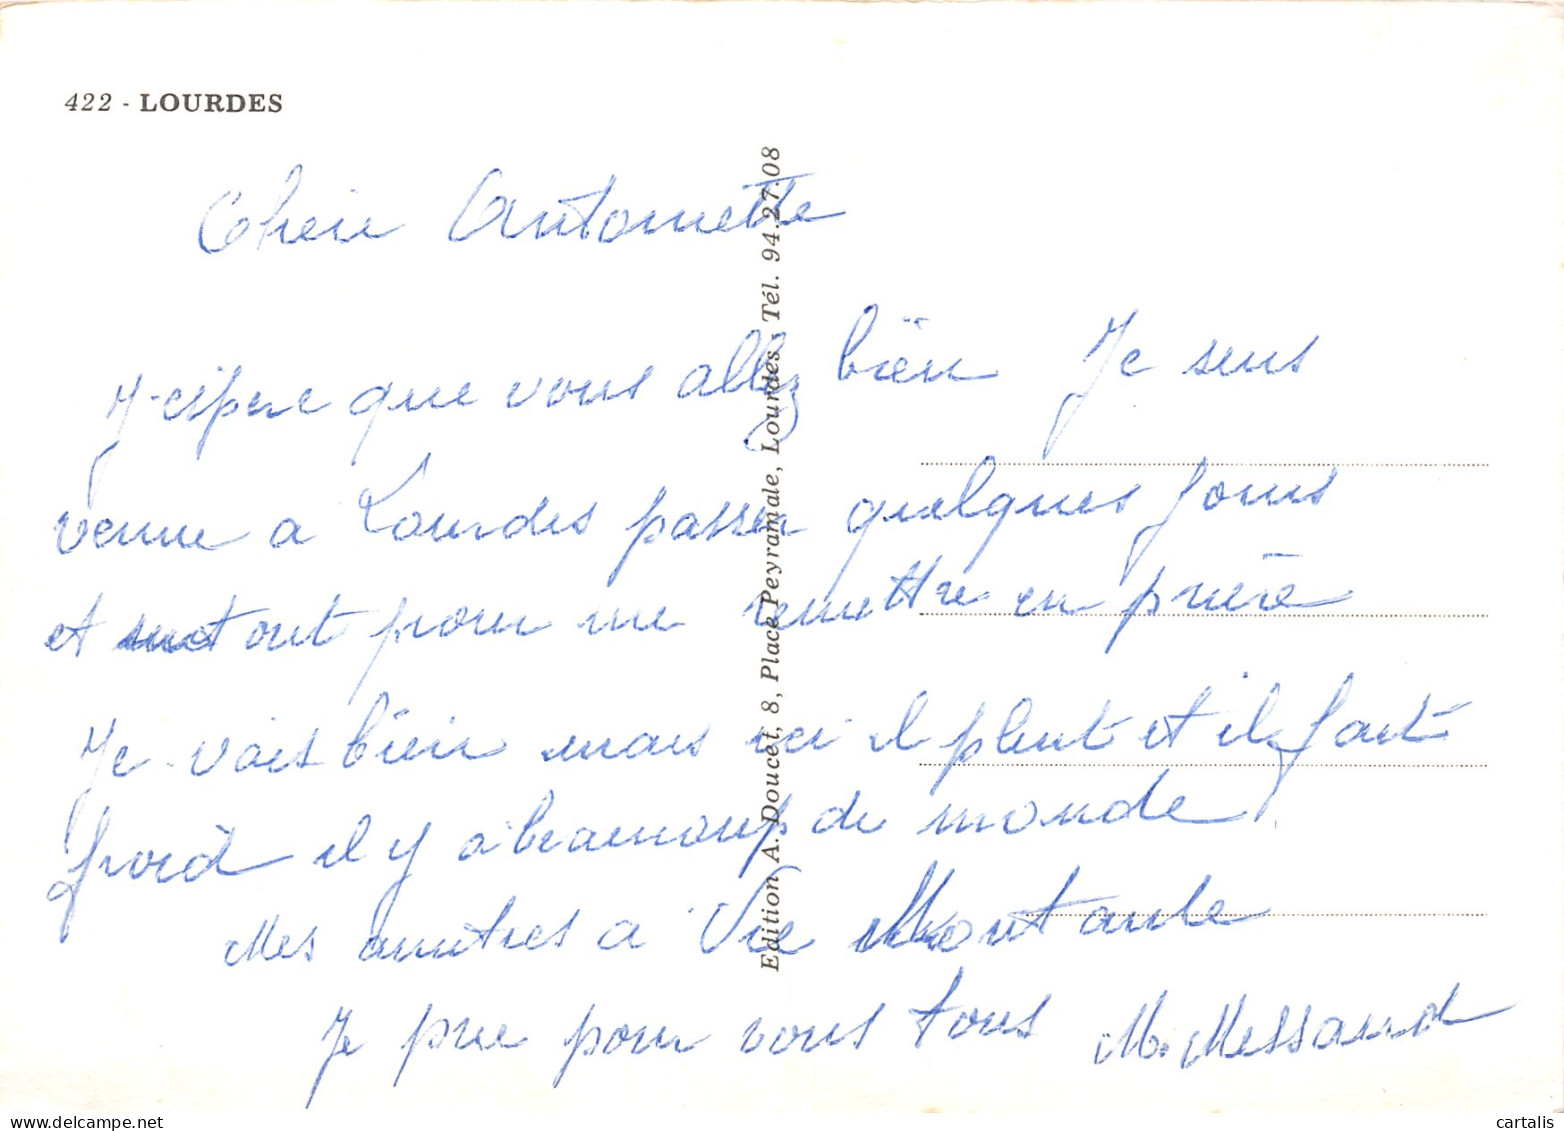 422 - LOURDES
Chere Antoinette
J'espere que vous allez bien Je suis
venue a Lourdes passer quelques jours
et surtout pour me remettre en prière
Je vais bien mais ici il pleut et il fait
froid il y a beaucoup de monde
Mes amitres a Vie Montante
Je prie pour vous tous M. Messaud
Edition A. Doucet, 8, Place Peyramale, Lourdes. Tél. 94.27.08
cartalis